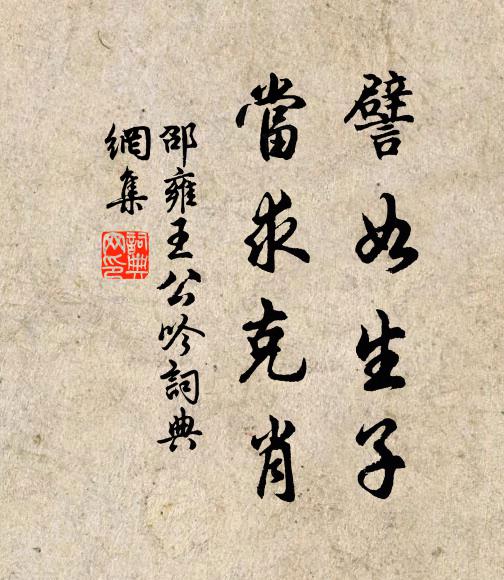 譬如生子
當求克肖
邵雍王公吟詞典
網集
詞典
网印